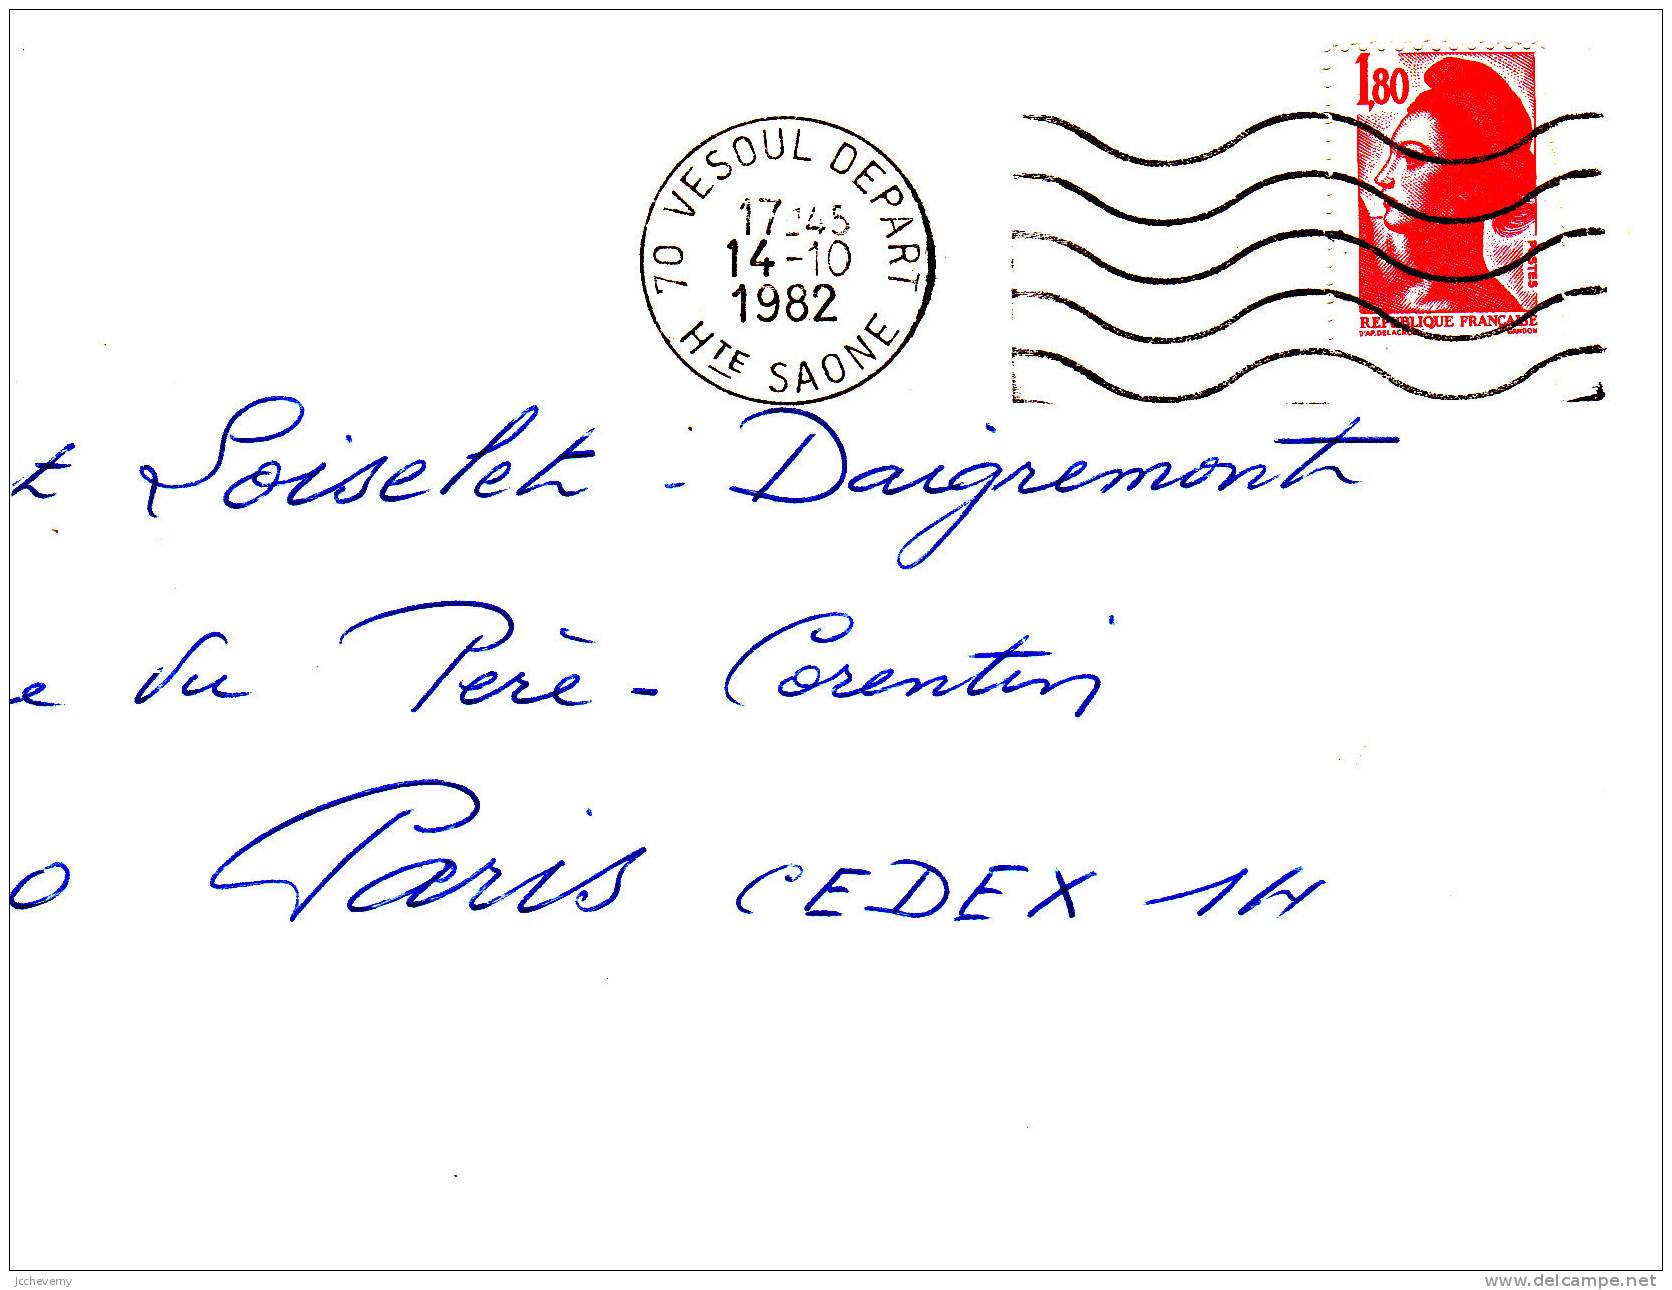 1,80
POSTES
REPUBLIQUE FRANÇAISE
D'AP. DELACROIX GANDON
70 VESOUL DEPART
17-45
14-10
1982
HTE SAONE
t Loiselet - Daigremont
e du Père - Corentin
0 Paris CEDEX 14
Jccheverny
www.delcampe.net